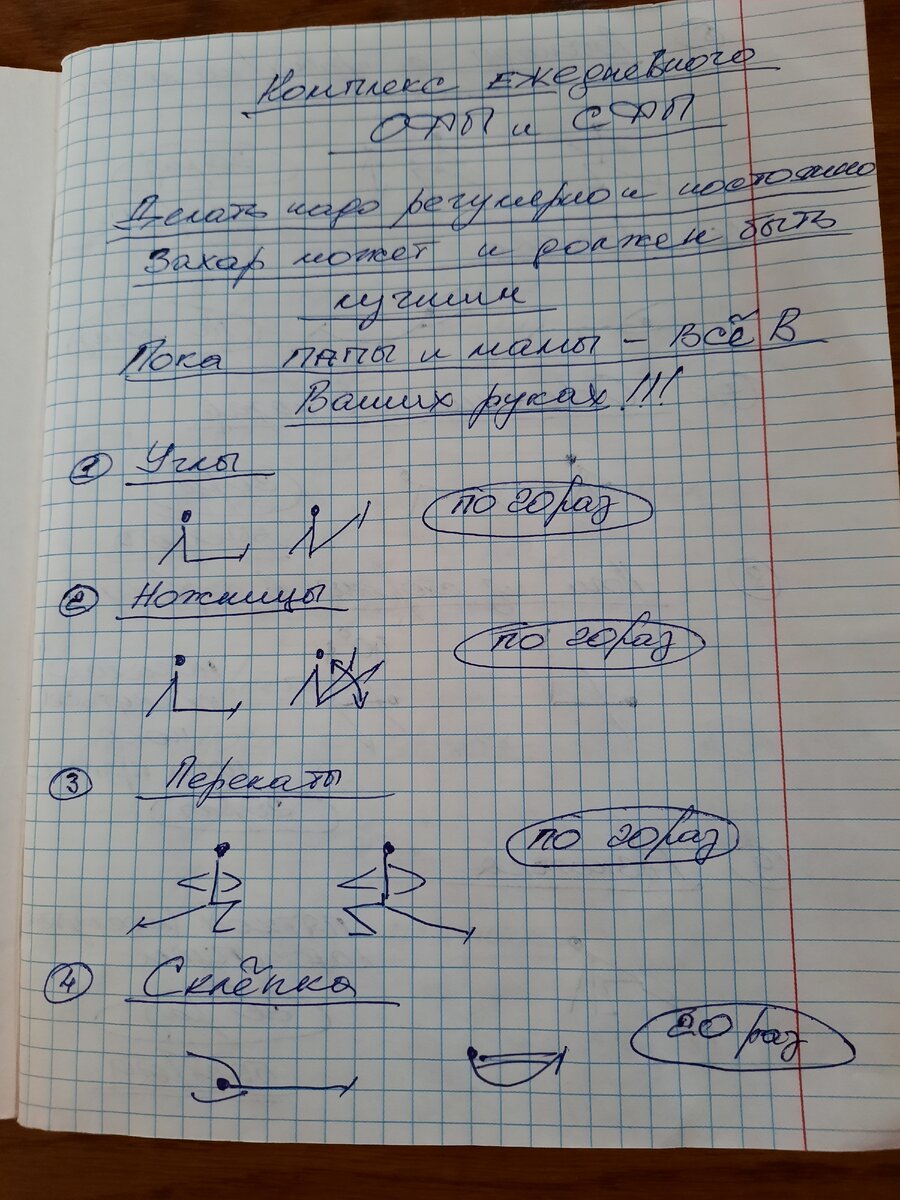 Комплекс ежедневного
ОФП и СФП
Делать надо регулярно и постоянно
Захар может и должен быть
лучшим
Пока папы и мамы - всё в
Ваших руках!!!
1 Углы
по 20 раз
2 Ножницы
по 20 раз
3 Перекаты
по 20 раз
4 Склёпка
20 раз